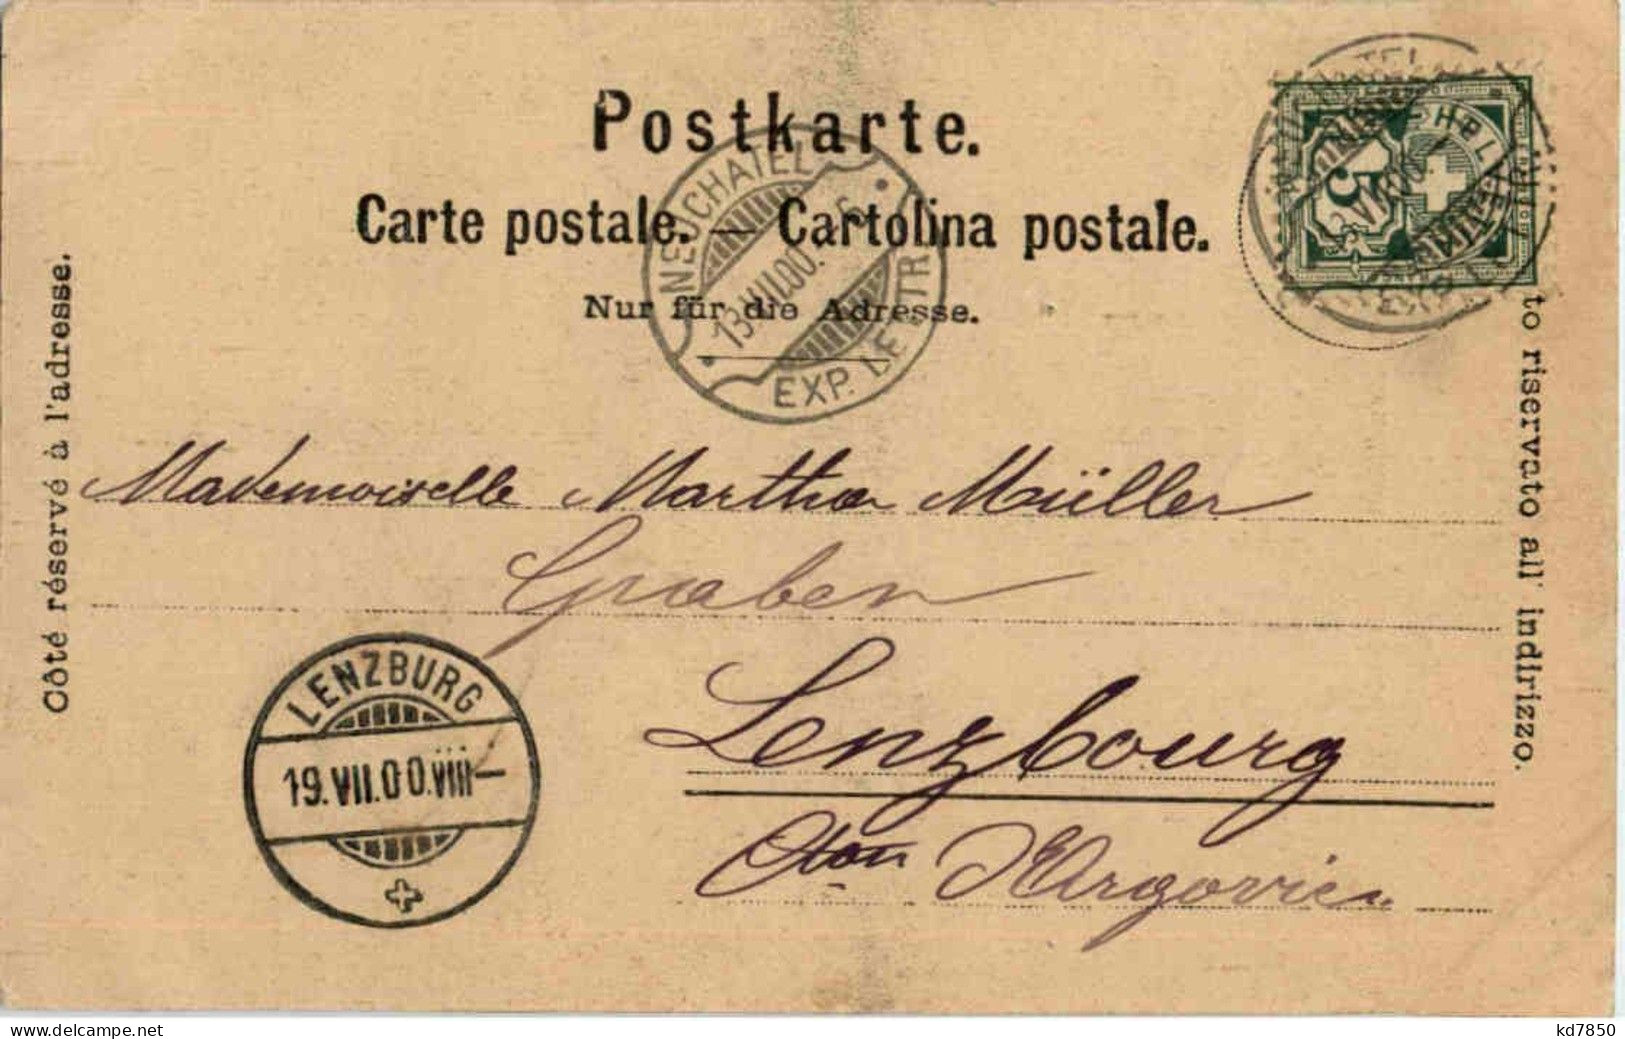 Postkarte.
Carte postale. — Cartolina postale.
Nur für die Adresse.
Côté réservé à l'adresse.
to riservato all' indirizzo.
NEUCHATEL
EXP. LETTR
5
Mademoiselle Martha Müller
Graben
Lenzbourg
Cton d'Argovie
LENZBURG
19.VII.00.VIII—
www.delcampe.net
kd7850